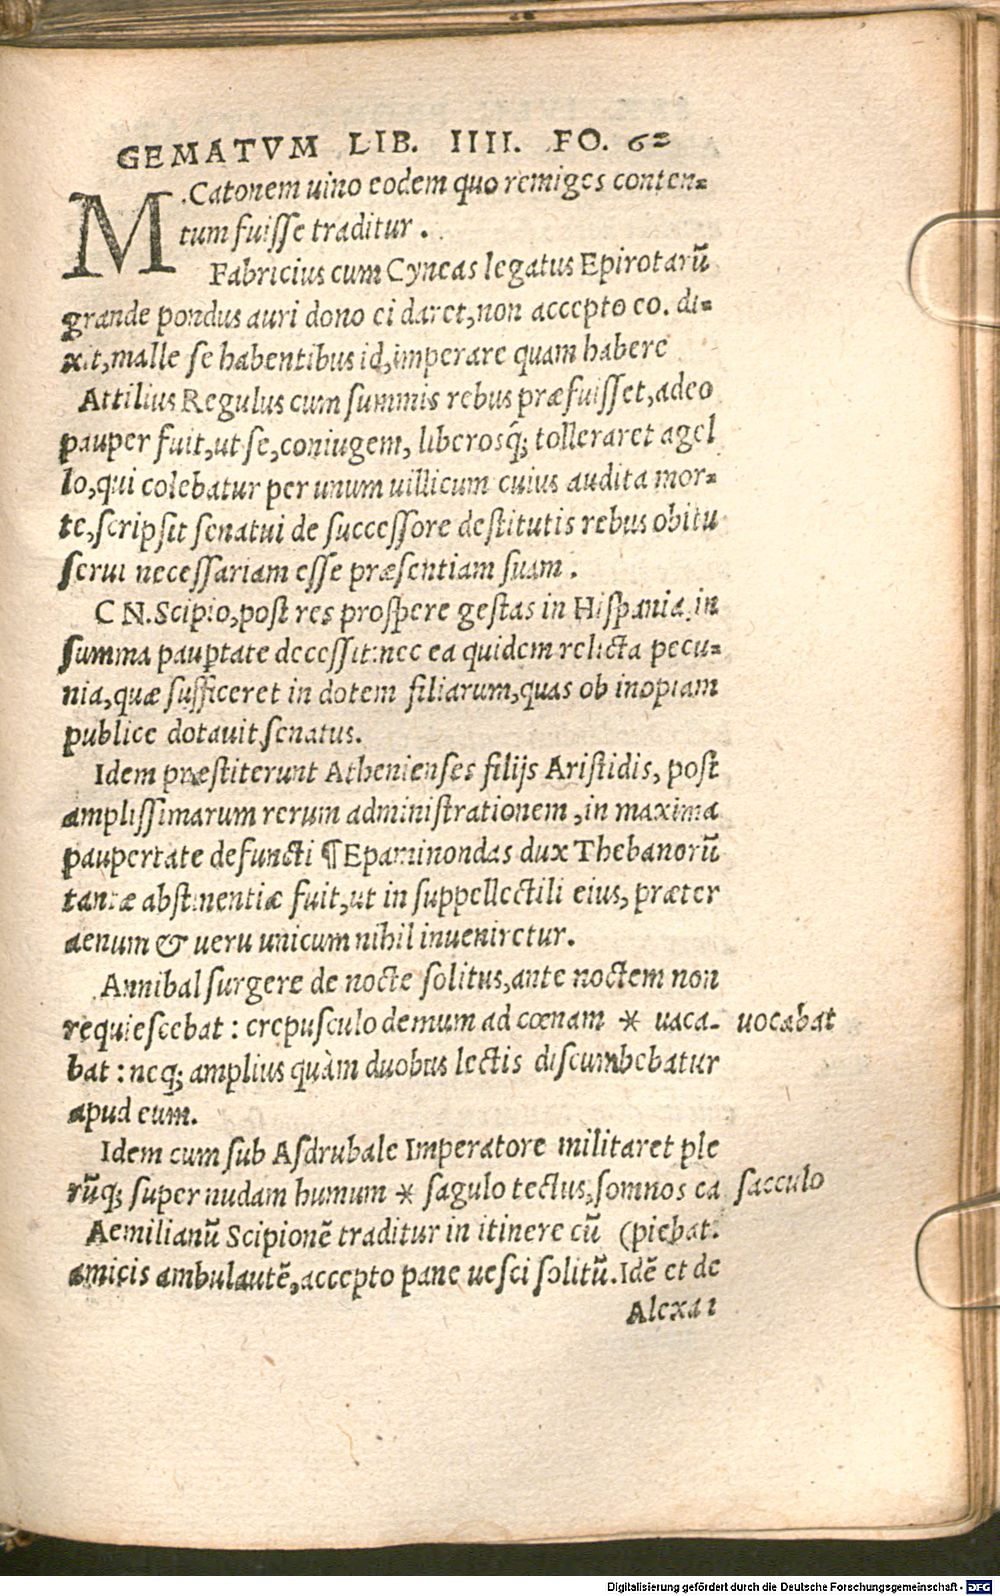 GEMATVM LIB. IIII. FO. 62
M .Catonem uino eodem quo remiges conten=
tum fuisse traditur.
Fabricius cum Cyneas legatus Epirotarũ
grande pondus auri dono ei daret, non accepto eo. di=
xit, malle se habentibus id, imperare quam habere
Attilius Regulus cum summis rebus præfuisset, adeo
pauper fuit, ut se, coniugem, liberosq; tolleraret agel
lo, qui colebatur per unum uillicum cuius audita mor=
te, scripsit senatui de successore destitutis rebus obitu
serui necessariam esse præsentiam suam.
C N. Scipio, post res prospere gestas in Hispania, in
summa pauptate decessit: nec ea quidem relicta pecu=
nia, quæ sufficeret in dotem filiarum, quas ob inopiam
publice dotauit senatus.
Idem præstiterunt Athenienses filijs Aristidis, post
amplissimarum rerum administrationem, in maxima
paupertate defuncti ¶ Epaminondas dux Thebanorũ
tantæ abstinentiæ fuit, ut in suppellectili eius, præter
aenum & ueru unicum nihil inueniretur.
Annibal surgere de nocte solitus, ante noctem non
requiescebat: crepusculo demum ad cœnam * uaca- uocabat
bat: neq; amplius quàm duobus lectis discumbebatur
apud eum.
Idem cum sub Asdrubale Imperatore militaret ple
rũq; super nudam humum * sagulo tectus, somnos ca sacculo
Aemilianũ Scipionẽ traditur in itinere cũ (piebat.
amicis ambulautẽ, accepto pane uesci solitũ. Idẽ et de
Alexan
Digitalisierung gefördert durch die Deutsche Forschungsgemeinschaft - DFG